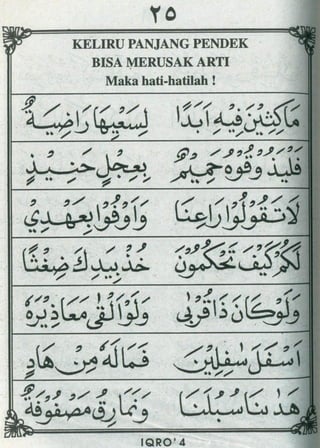 ٢٥
KELIRU PANJANG PENDEK
BISA MERUSAK ARTI
Maka hati-hatilah !
مَاكِثِيْنَ فِيْهِ اَبَدًا لِسَعْيِهَا رَاضِيَةٌ
فَلْيَذُوْقُوْهُ حَمِيْمٌ بِعِجْلٍ حَنِيْذٍ
لَا تَقُوْلُوْا رَاعِنَا وَاَوْفُوْا بِعَهْدِيْ
لَكُمْ كَيْفَ تَحْكُمُوْنَ خُذْ بِيَدِكَ ضِغْثًا
وَلَوْ كَانَ ذَا قُرْبٰى وَلَوْ اَلْقٰى مَعَاذِيْرَهُ
اَسْفَلَ سَافِلِيْنَ فَمَا لَهُ مِنْ هَادٍ
هَدٰىنَا سُبُلَنَا وَنَمَارِقُ مَصْفُوْفَةٌ
IQRO' 4